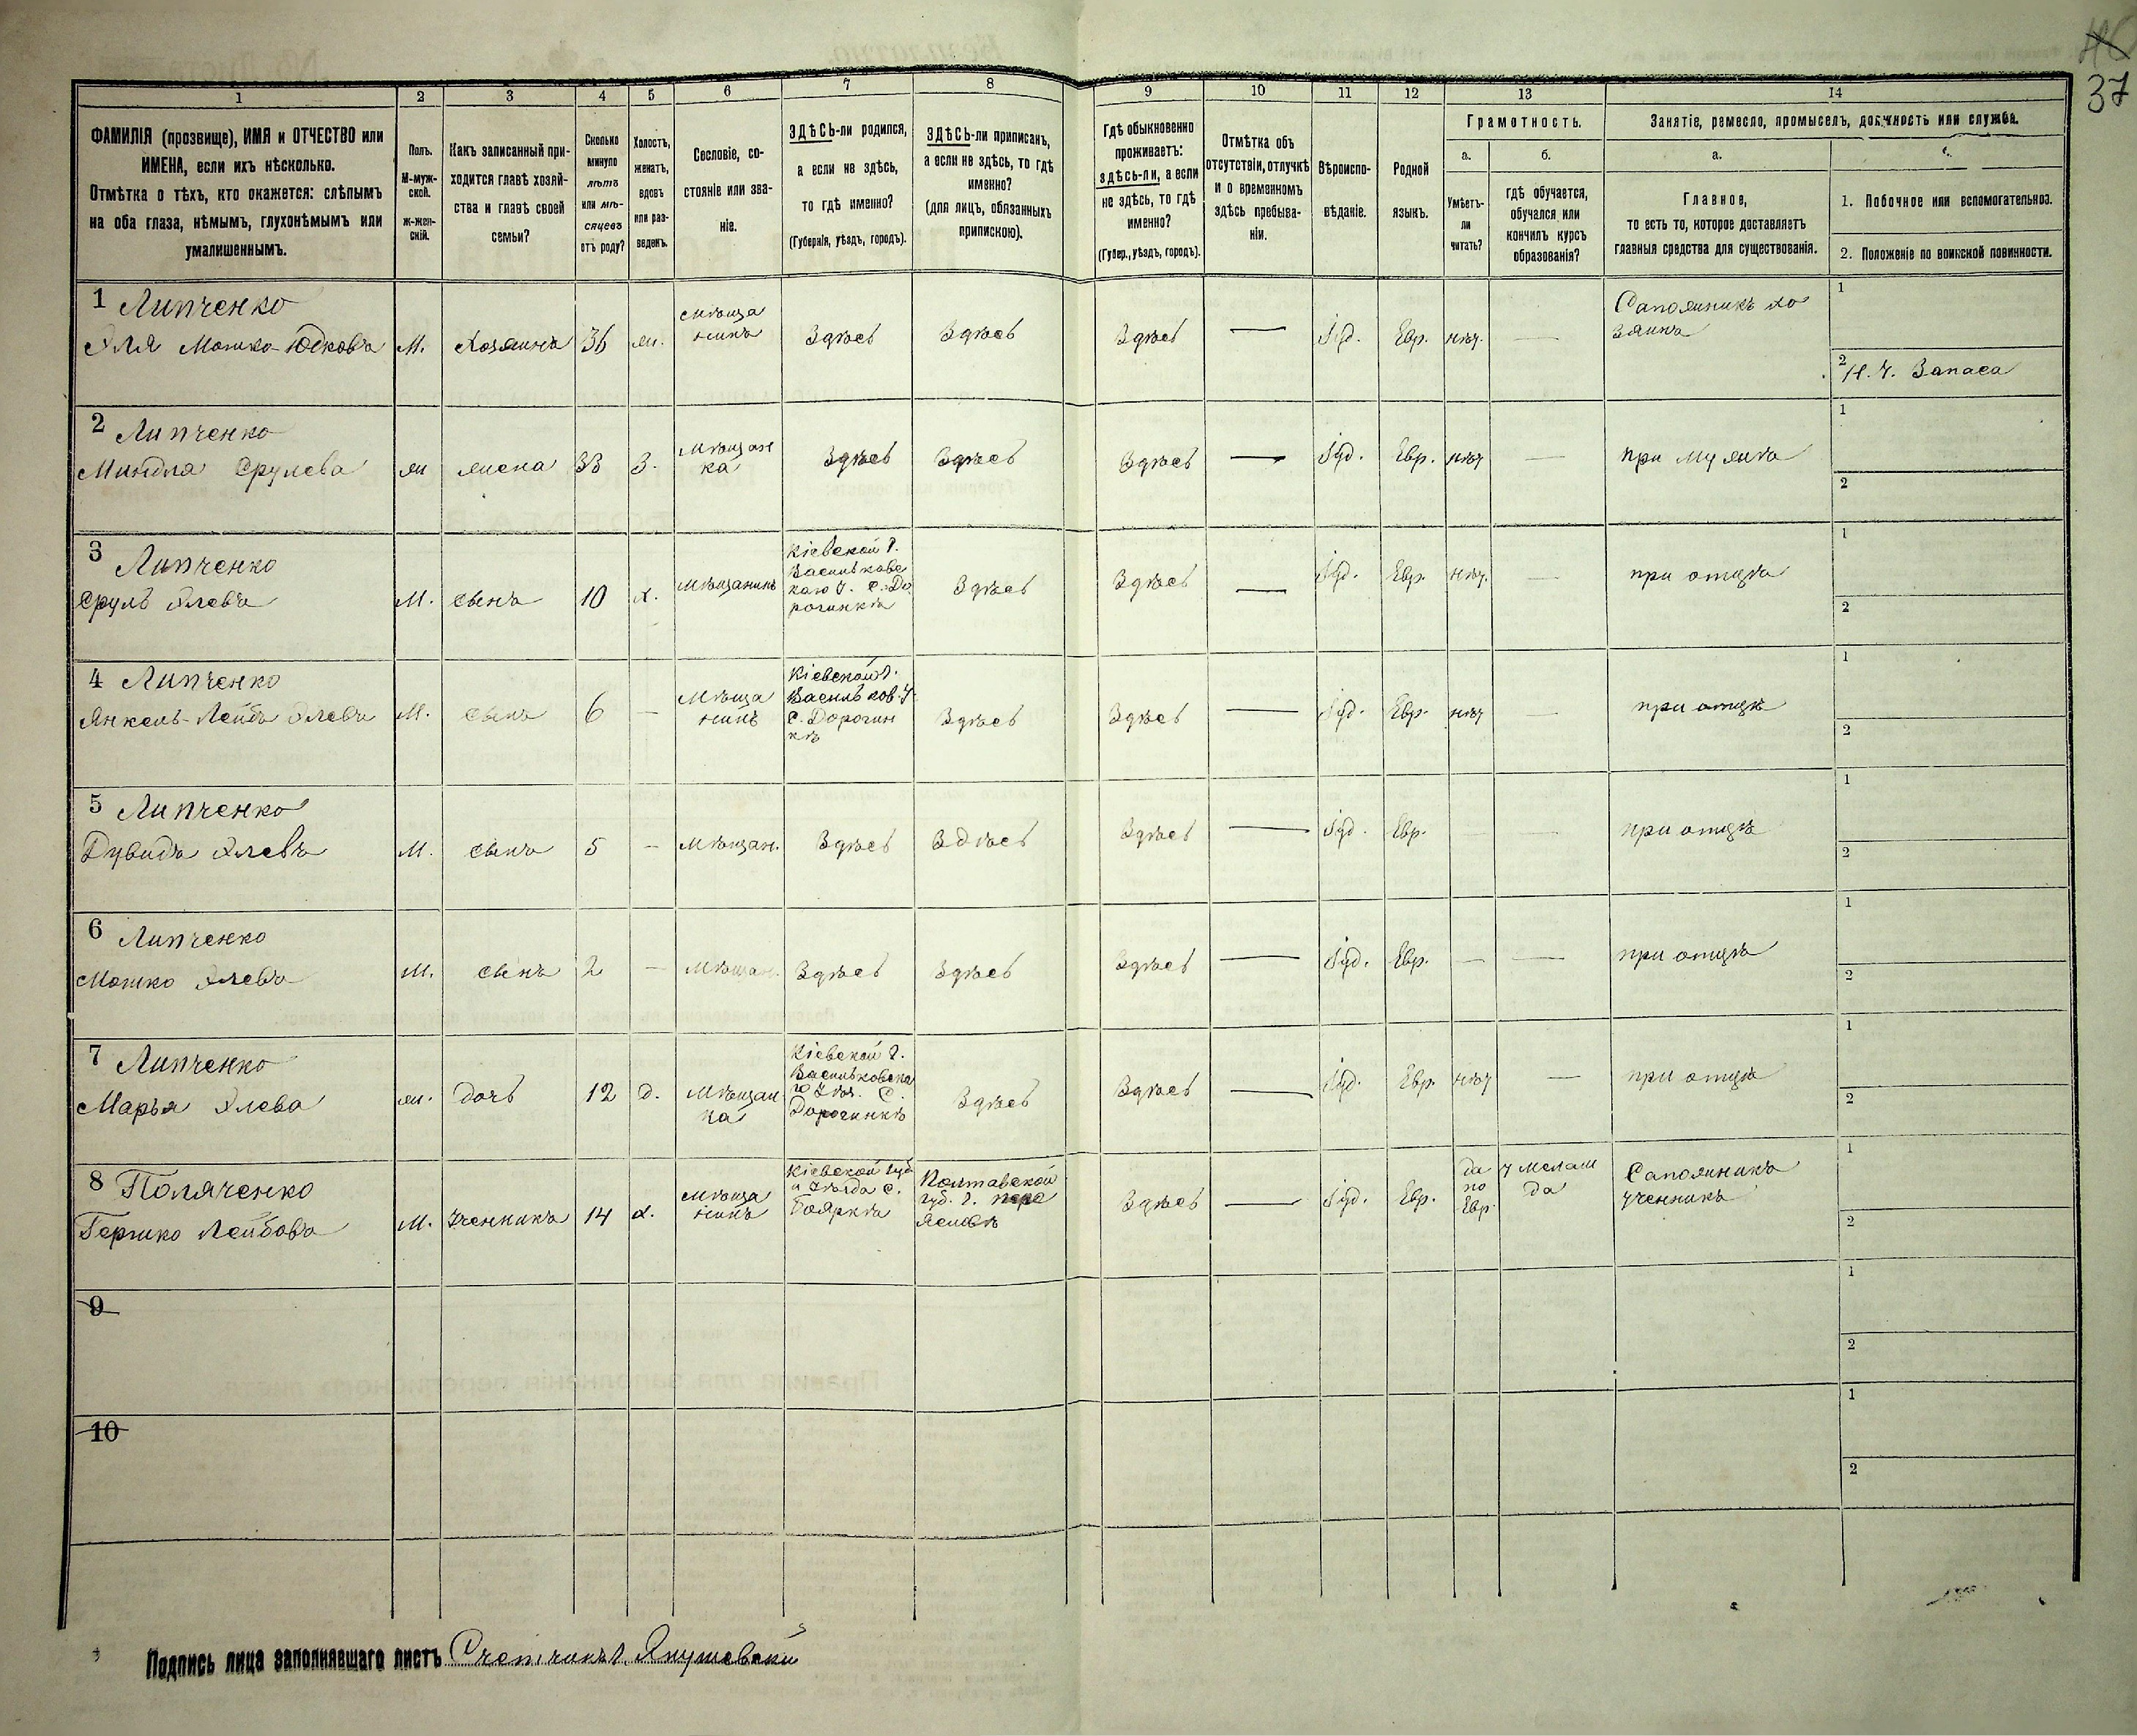 37
1 2 3 4 5 6 7 8 9 10 11 12 13 14
ФАМИЛІЯ (прозвище), ИМЯ и ОТЧЕСТВО или
ИМЕНА, если ихъ нѣсколько.
Отмѣтка о тѣхъ, кто окажется: слѣпымъ
на оба глаза, нѣмымъ, глухонѣмымъ или
умалишеннымъ.
Полъ.
М-муж-
ской.
Ж-жен-
скій.
Какъ записанный при-
ходится главѣ хозяй-
ства и главѣ своей
семьи?
Сколько
минуло
лѣтъ
или мѣ-
сяцевъ
отъ роду?
Холостъ,
женатъ,
вдовъ
или раз-
веденъ.
Сословіе, со-
стояніе или зва-
ніе.
ЗДѢСЬ-ли родился,
а если не здѣсь,
то гдѣ именно?
(Губернія, уѣздъ, городъ).
ЗДѢСЬ-ли приписанъ,
а если не здѣсь, то гдѣ
именно?
(для лицъ, обязанныхъ
припискою).
Гдѣ обыкновенно
проживаетъ:
здѣсь-ли, а если
не здѣсь, то гдѣ
именно?
(Губер., уѣздъ, городъ).
Отмѣтка объ
отсутствіи, отлучкѣ
и о временномъ
здѣсь пребыва-
ніи.
Вѣроиспо-
вѣданіе.
Родной
языкъ.
Грамотность.
а.
Умѣетъ-
ли
читать?
б.
гдѣ обучается,
обучался или
кончилъ курсъ
образованія?
Занятіе, ремесло, промыселъ, должность или служба.
а.
Главное,
то есть то, которое доставляетъ
главныя средства для существованія.
1. Побочное или вспомогательное.
2. Положеніе по воинской повинности.
1 Липченко
Эля Мошко-Юдковъ
М.
Хозяинъ
36
ж.
Мѣща
нинъ
Здѣсь
Здѣсь
Здѣсь
—
Іуд.
Евр.
нѣт.
—
Сапожникъ хо
зяинъ
1
2 Н. Ч. Запаса
2 Липченко
Миндля Срулева
ж
жена
33
З.
Мѣщан
ка
Здѣсь
Здѣсь
Здѣсь
—
Іуд.
Евр.
нѣт
—
при мужѣ
1
2
3 Липченко
Сруль Элевъ
М.
сынъ
10
х.
Мѣщанинъ
Кіевской г.
Васильковс
каго у. С. До
рогинкѣ
Здѣсь
Здѣсь
—
Іуд.
Евр.
нѣт.
—
при отцѣ
1
2
4 Липченко
Янкель-Лейбъ Элевъ
М.
сынъ
6
—
Мѣща
нинъ
Кіевской г.
Васильков. у.
С. Дорогин
кѣ
Здѣсь
Здѣсь
—
Іуд.
Евр.
нѣт
—
при отцѣ
1
2
5 Липченко
Дувидъ Элевъ
М.
сынъ
5
—
Мѣщан.
Здѣсь
Здѣсь
Здѣсь
—
Іуд.
Евр.
—
—
при отцѣ
1
2
6 Липченко
Мошко Элевъ
М.
сынъ
2
—
Мѣщан.
Здѣсь
Здѣсь
Здѣсь
—
Іуд.
Евр.
—
—
при отцѣ
1
2
7 Липченко
Марья Элева
ж.
дочь
12
д.
Мѣщан
ка
Кіевской г.
Васильковска
го уѣз. С.
Дорогинкѣ
Здѣсь
Здѣсь
—
Іуд.
Евр.
нѣт
—
при отцѣ
1
2
8 Поляченко
Гершко Лейбовъ
М.
Ученникъ
14
х.
Мѣща
нинъ
Кіевской губ
и уѣзда с.
Бояркѣ
Полтавской
губ. г. Пере
яславѣ
Здѣсь
—
Іуд.
Евр.
да
по
Евр.
у мелам
да
Сапожникъ
ученникъ
1
2
9
1
2
10
1
2
Подпись лица заполнявшаго листъ Счетчикъ Янушевскій